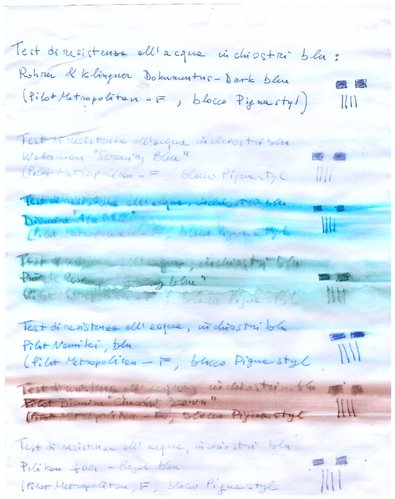 Test di resistenza all'acqua inchiostri blu:
Rohrer & Klingner Dokumentus - Dark blu
(Pilot Metropolitan - F, blocco Pigna styl)
Test di resistenza all'acqua inchiostri blu
Waterman "Serenity Blue"
(Pilot Metropolitan - F, blocco Pigna styl
Test di resistenza all'acqua, inchiostri blu
Diamine
(Pilot Metropolitan - F, blocco Pigna styl
Test di resistenza all'acqua, inchiostri blu
blu"
blocco Pigna styl
Test di resistenza all'acqua, inchiostri blu
Pilot Namiki, blu
(Pilot Metropolitan - F, blocco Pigna styl
Test di resistenza all'acqua, inchiostri blu
Pilot Diamine "Chocolate Brown"
(Pilot Metropolitan - F, blocco Pigna styl
Test di resistenza all'acqua, inchiostri blu
Pelikan 4001 - Royal blu
(Pilot Metropolitan, F, blocco Pigna styl